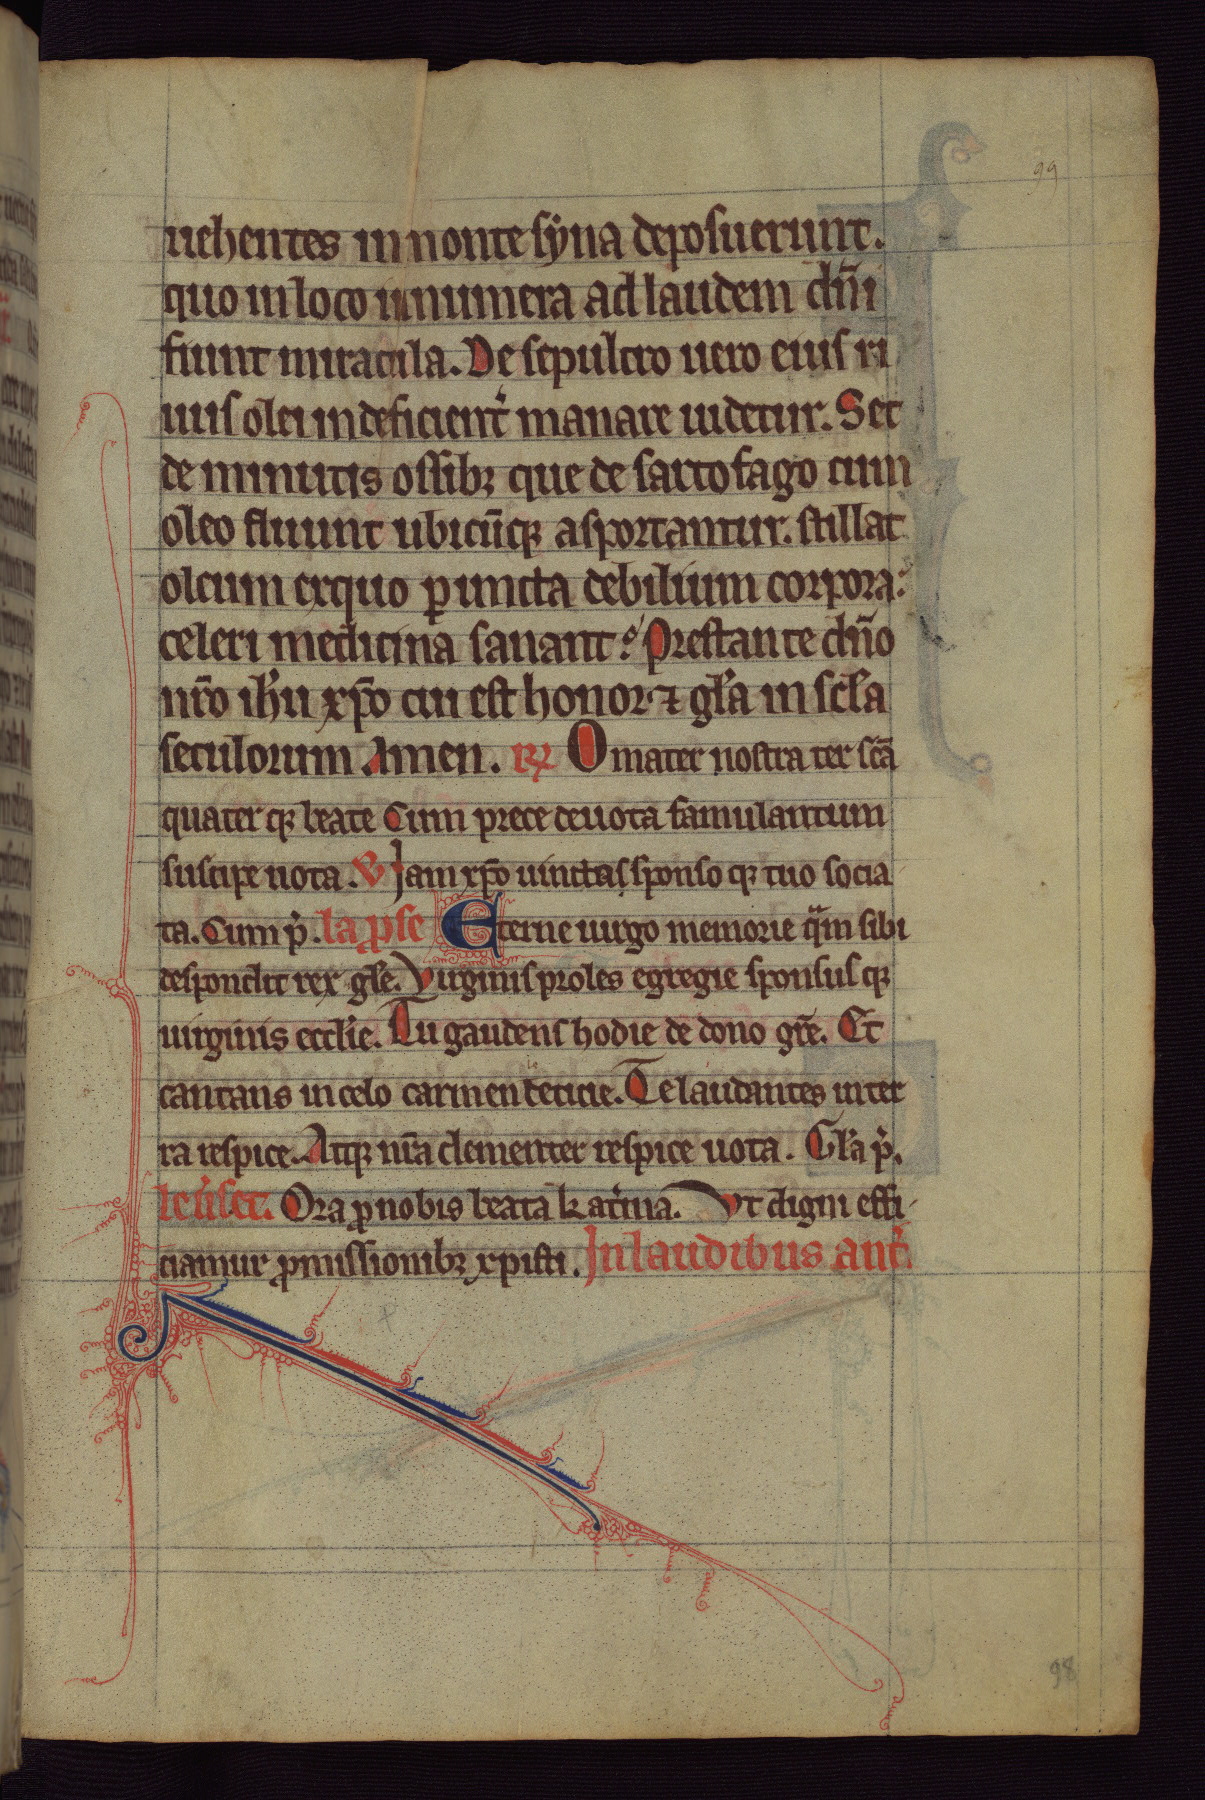 99
uehentes in monte syna deposuerunt.
quo in loco innumera ad laudem dn̄i
fiunt miracula. De sepulcro uero eius ri
uus olei indeficient̉ manare uidetur. Set
de minutis ossibꝫ que de sarcofago cum
oleo fluunt ubicūqꝫ asportantur. stillat
oleum ex quo ꝑuncta debilium corpora:
celeri medicina sanant᷑. Prestante dn̄o
nr̄o ih̄u xp̄o cui est honor ⁊ gl̄a in sc̄la
seculorum Amen. R͛ O mater nostra ter sc̄a
quater qꝫ beate Cum prece deuota famulantum
suscipe uota. V Jam xp̄o uinctas sponso qꝫ tuo socia
ta. Cum p̉. la ꝓse Eterne uirgo memorie qᷓm sibi
despondit rex gl̄e. Virginis proles egregie sponsus qꝫ
uirginis eccl̄ie. Tu gaudens hodie de dono gr̄e. Et
cantans in celo carmen leticie. Te laudantes in ter
ra respice. Atqꝫ nr̄a clementer respice uota. Gl̄a p̉.
Ora ꝓ nobis beata kat̉ina. Vt digni effi
ciamur ꝓmissionibꝫ xpisti. In laudibus ant̉.
98